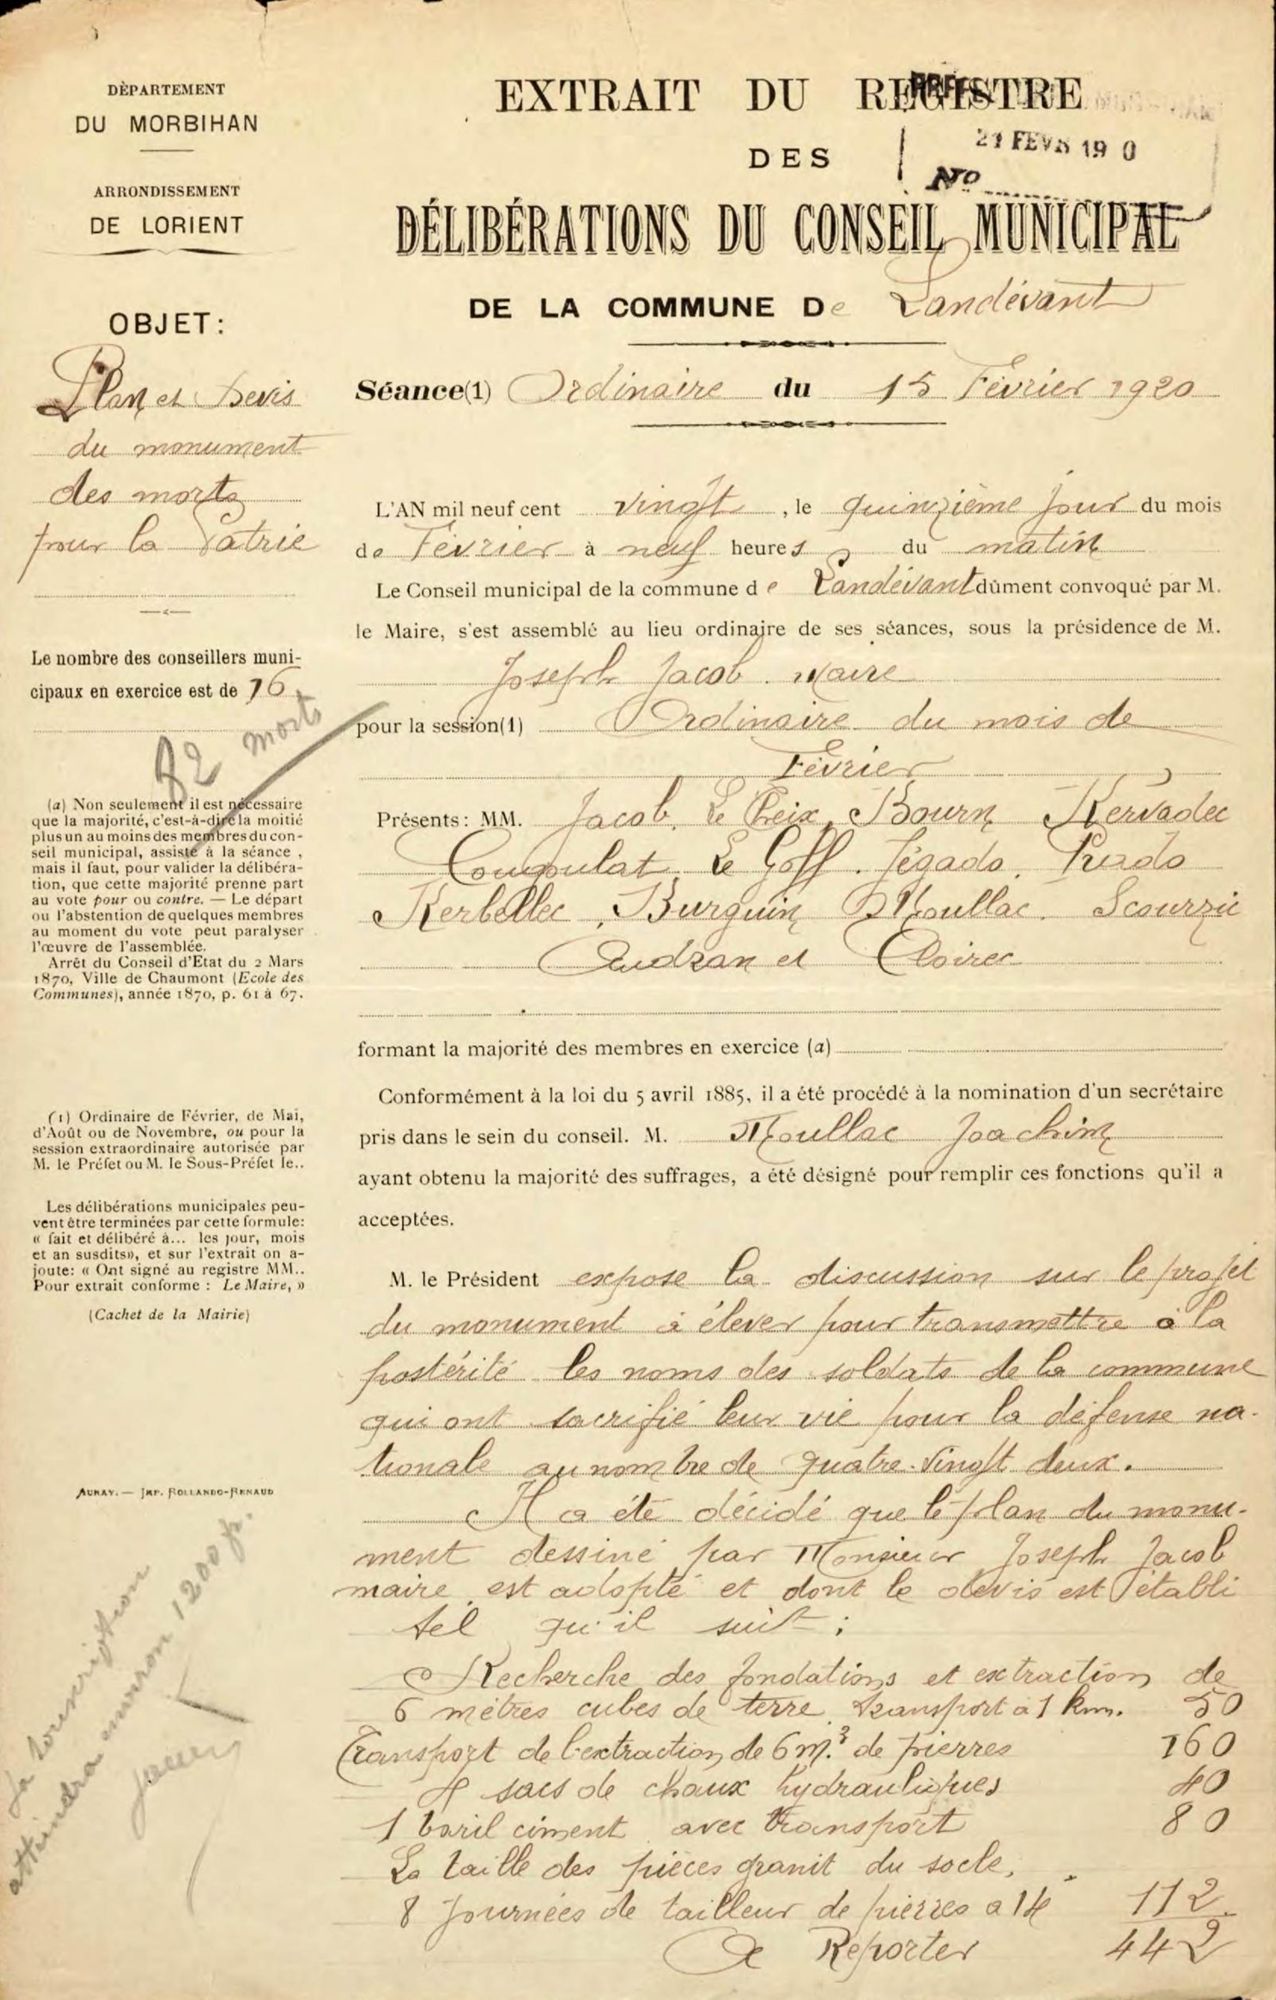 DÈPARTEMENT
DU MORBIHAN
ARRONDISSEMENT
DE LORIENT
OBJET:
Plan et Devis
du monument
des morts
pour la Patrie
Le nombre des conseillers muni-
cipaux en exercice est de 16.
82 morts
(a) Non seulement il est nécessaire
que la majorité, c'est-à-dire la moitié
plus un au moins des membres du con-
seil municipal, assiste à la séance,
mais il faut, pour valider la délibéra-
tion, que cette majorité prenne part
au vote pour ou contre. — Le départ
ou l'abstention de quelques membres
au moment du vote peut paralyser
l'œuvre de l'assemblée.
Arrêt du Conseil d'Etat du 2 Mars
1870, Ville de Chaumont (Ecole des
Communes), année 1870, p. 61 à 67.
(1) Ordinaire de Février, de Mai,
d'Août ou de Novembre, ou pour la
session extraordinaire autorisée par
M. le Préfet ou M. le Sous-Préfet le..
Les délibérations municipales peu-
vent être terminées par cette formule:
« fait et délibéré à... les jour, mois
et an susdits», et sur l'extrait on a-
joute: « Ont signé au registre MM..
Pour extrait conforme : Le Maire, »
(Cachet de la Mairie)
AURAY. — IMP. ROLLANDO-RENAUD
La souscription
atteindra environ 1200 fr.
EXTRAIT DU REGISTRE
21 FEVR 19 0
DES
No
DÉLIBÉRATIONS DU CONSEIL MUNICIPAL
DE LA COMMUNE De Landévant
Séance(1) Ordinaire du 15 Février 1920
L'AN mil neuf cent vingt, le quinzième jour du mois
de Février à neuf heures du matin
Le Conseil municipal de la commune de Landévant dûment convoqué par M.
le Maire, s'est assemblé au lieu ordinaire de ses séances, sous la présidence de M.
Joseph Jacob. maire
pour la session(1) Ordinaire du mois de
Février
Présents: MM. Jacob, Le Bourn Kervadec
Le Goff. Jégado. Prado
Kerbellec, Burguin Moullac. Scourzic
Audran et Cloirec
formant la majorité des membres en exercice (a)
Conformément à la loi du 5 avril 1885, il a été procédé à la nomination d'un secrétaire
pris dans le sein du conseil. M. Moullac Joachim
ayant obtenu la majorité des suffrages, a été désigné pour remplir ces fonctions qu'il a
acceptées.
M. le Président expose la discussion sur le projet
du monument à élever pour transmettre à la
postérité les noms des soldats de la commune
qui ont sacrifié leur vie pour la défense na-
tionale au nombre de quatre-vingt deux.
Il a été décidé que le plan du monu-
ment dessiné par Monsieur Joseph Jacob
maire est adopté et dont le devis est établi
tel qu'il suit :
Recherche des fondations et extraction de
6 mètres cubes de terre, transport à 1 km. 50
Transport de l'extraction de 6 m.3 de pierres 160
4 sacs de chaux hydrauliques 40
1 baril ciment avec transport 80
La taille des pièces granit du socle,
8 Journées de tailleur de pierres à 14 112
A Reporter 442